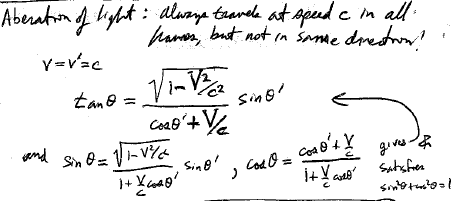 Aberration of light : always travels at speed c in all
frames, but not in same direction!
v = v' = c
tan θ = √(1 - V²/c²) sin θ' / (cos θ' + V/c)
and sin θ = √(1 - V²/c²) / (1 + V/c cos θ') sin θ' , cos θ = (cos θ' + V/c) / (1 + V/c cos θ') gives &
satisfies
sin²θ + cos²θ = 1